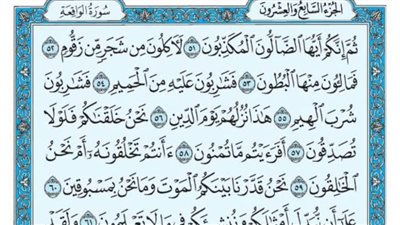 الجزء السابع والعشرون
سورة الواقعة
ثُمَّ إِنَّكُمْ أَيُّهَا ٱلضَّآلُّونَ ٱلْمُكَذِّبُونَ ٥١ لَءَاكِلُونَ مِن شَجَرٍ مِّن زَقُّومٍ ٥٢
فَمَالِـُٔونَ مِنْهَا ٱلْبُطُونَ ٥٣ فَشَٰرِبُونَ عَلَيْهِ مِنَ ٱلْحَمِيمِ ٥٤ فَشَٰرِبُونَ
شُرْبَ ٱلْهِيمِ ٥٥ هَٰذَا نُزُلُهُمْ يَوْمَ ٱلدِّينِ ٥٦ نَحْنُ خَلَقْنَٰكُمْ فَلَوْلَا
تُصَدِّقُونَ ٥٧ أَفَرَءَيْتُم مَّا تُمْنُونَ ٥٨ ءَأَنتُمْ تَخْلُقُونَهُۥٓ أَمْ نَحْنُ
ٱلْخَٰلِقُونَ ٥٩ نَحْنُ قَدَّرْنَا بَيْنَكُمُ ٱلْمَوْتَ وَمَا نَحْنُ بِمَسْبُوقِينَ ٦٠
عَلَىٰٓ أَن نُّبَدِّلَ أَمْثَٰلَكُمْ وَنُنشِئَكُمْ فِى مَا لَا تَعْلَمُونَ ٦١ وَلَقَدْ